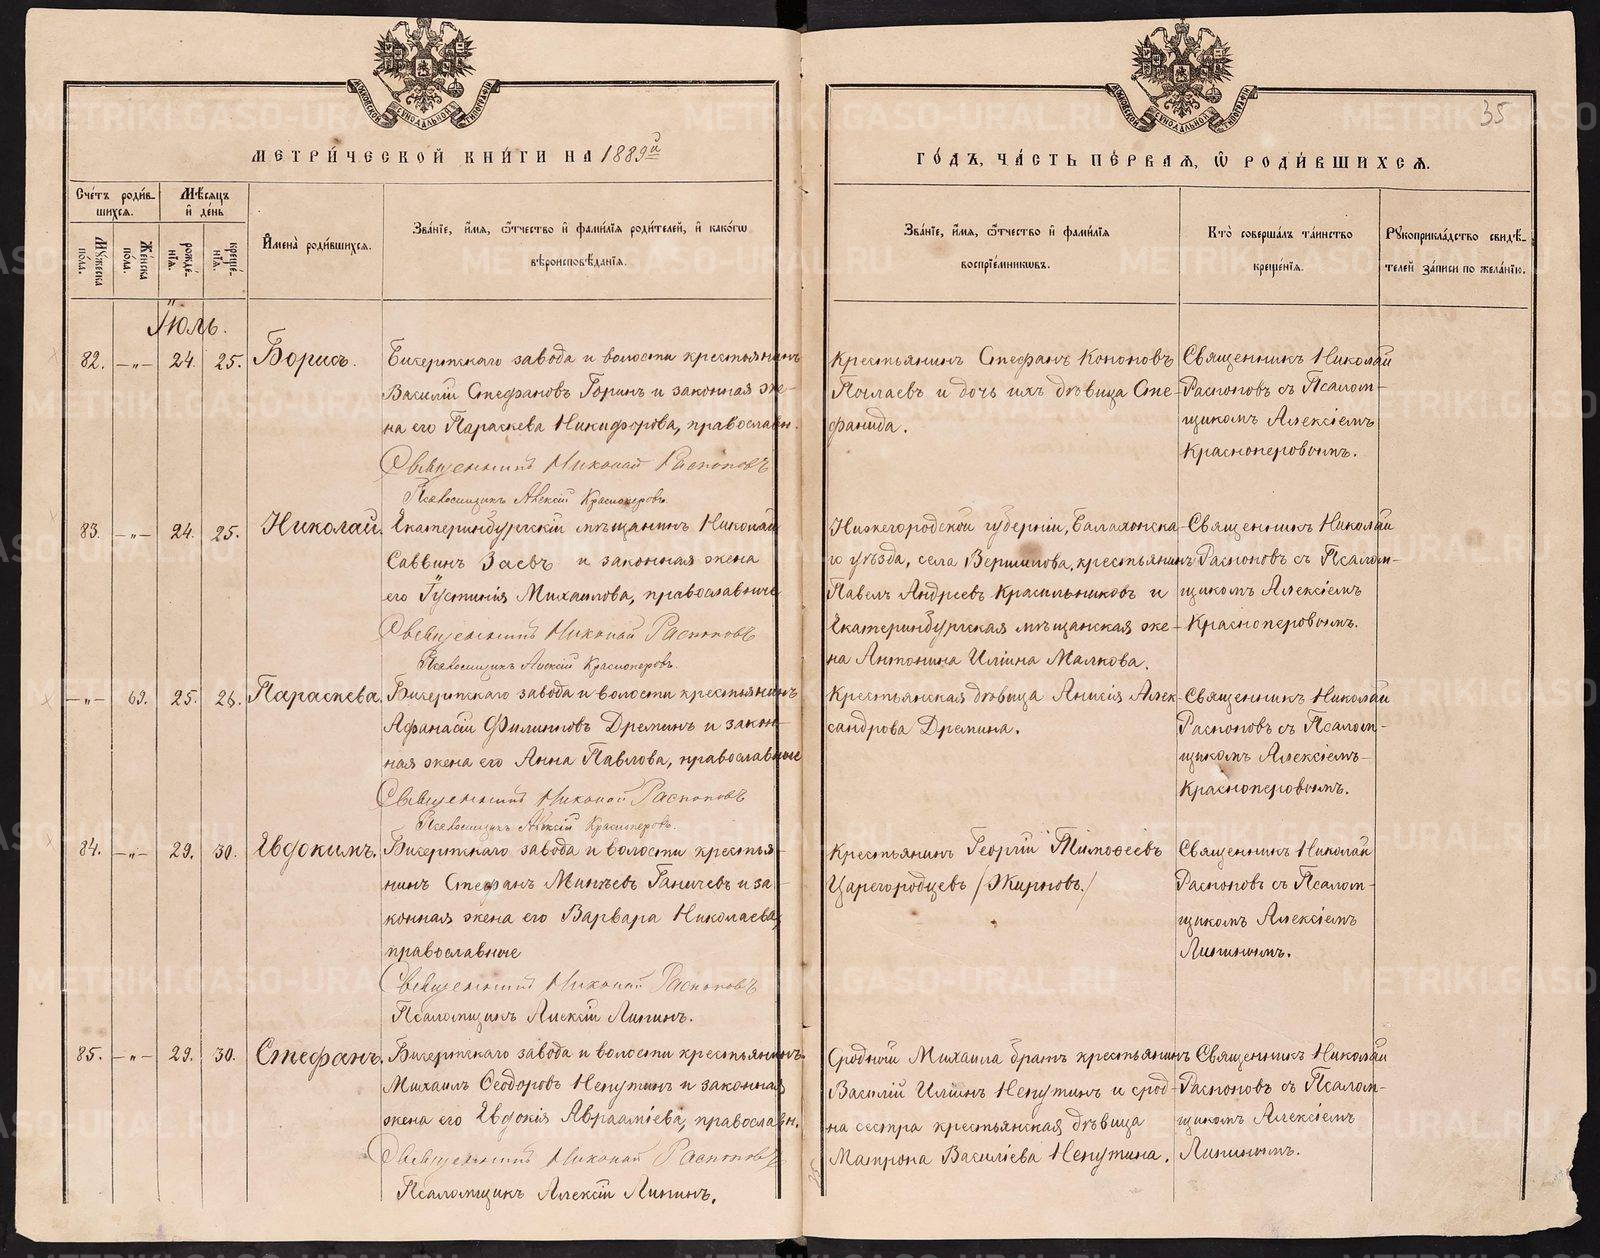 МЕТРИЧЕСКОЙ КНИГИ НА 1889й
Счетъ родив-
шихся.
Мѣсяцъ
и день
Мужеска
пола.
Женска
пола.
рожде-
нія.
креще-
нія.
Имена родившихся.
Званіе, имя, отчество и фамилія родителей, и какого
вѣроисповѣданія.
Іюль.
82. —„— 24. 25. Борисъ.
Бисертскаго завода и волости крестьянинъ
Василій Стефановъ Горинъ и законная же-
на его Параскева Никифорова, православн.
Священникъ Николай Распоповъ
Псаломщикъ Алексій Красноперовъ.
83. —„— 24. 25. Николай.
Екатеринбургскій мѣщанинъ Николай
Саввинъ Заевъ и законная жена
его Іустинія Михаилова, православные
Священникъ Николай Распоповъ
Псаломщикъ Алексій Красноперовъ.
—„— 69. 25. 26. Параскева.
Бисертскаго завода и волости крестьянинъ
Афанасій Филипповъ Дреминъ и закон-
ная жена его Анна Павлова, православные
Священникъ Николай Распоповъ
Псаломщикъ Алексій Красноперовъ.
84. —„— 29. 30. Евдокимъ.
Бисертскаго завода и волости крестья-
нинъ Стефанъ Минѣевъ Ганичевъ и за-
конная жена его Варвара Николаева,
православные
Священникъ Николай Распоповъ
Псаломщикъ Алексій Липинъ.
85. —„— 29. 30. Стефанъ.
Бисертскаго завода и волости крестьянинъ
Михаилъ Ѳеодоровъ Непутинъ и законная
жена его Евдокія Авраамiева, православн.
Священникъ Николай Распоповъ
Псаломщикъ Алексій Липинъ.
35
ГОДЪ, ЧАСТЬ ПЕРВАЯ, Ѡ РОДИВШИХСЯ.
Званіе, имя, отчество и фамилія
воспріемниковъ.
Кто совершалъ таинство
крещенія.
Рукоприкладство свидѣ-
телей записи по желанію.
Крестьянинъ Стефанъ Кононовъ
Почлаевъ и дочь ихъ дѣвица Сте-
фанида.
Священникъ Николай
Распоповъ съ Псалом-
щикомъ Алексіемъ
Красноперовымъ.
Нижегородской губерніи, Балахонска-
го уѣзда, села Вершилова, крестьянинъ
Павелъ Андреевъ Красильниковъ и
Екатеринбургская мѣщанская же-
на Антонина Иліина Малкова.
Священникъ Николай
Распоповъ съ Псалом-
щикомъ Алексіемъ
Красноперовымъ.
Крестьянская дѣвица Анисія Алек-
сандрова Дремина.
Священникъ Николай
Распоповъ съ Псалом-
щикомъ Алексіемъ
Красноперовымъ.
Крестьянинъ Георгій Тимоѳеевъ
Царегородцевъ /Жирновъ./
Священникъ Николай
Распоповъ съ Псалом-
щикомъ Алексіемъ
Липинымъ.
Сродный Михаила братъ крестьянинъ
Василій Иліинъ Непутинъ и срод-
на сестра крестьянская дѣвица
Матрона Василіева Непутина.
Священникъ Николай
Распоповъ съ Псалом-
щикомъ Алексіемъ
Липинымъ.
METRIKI.GASO-URAL.RU